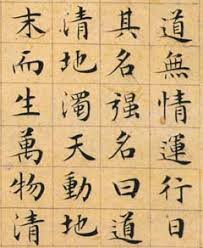 道無情運行日
其名强名曰道
清地濁天動地
末而生萬物清